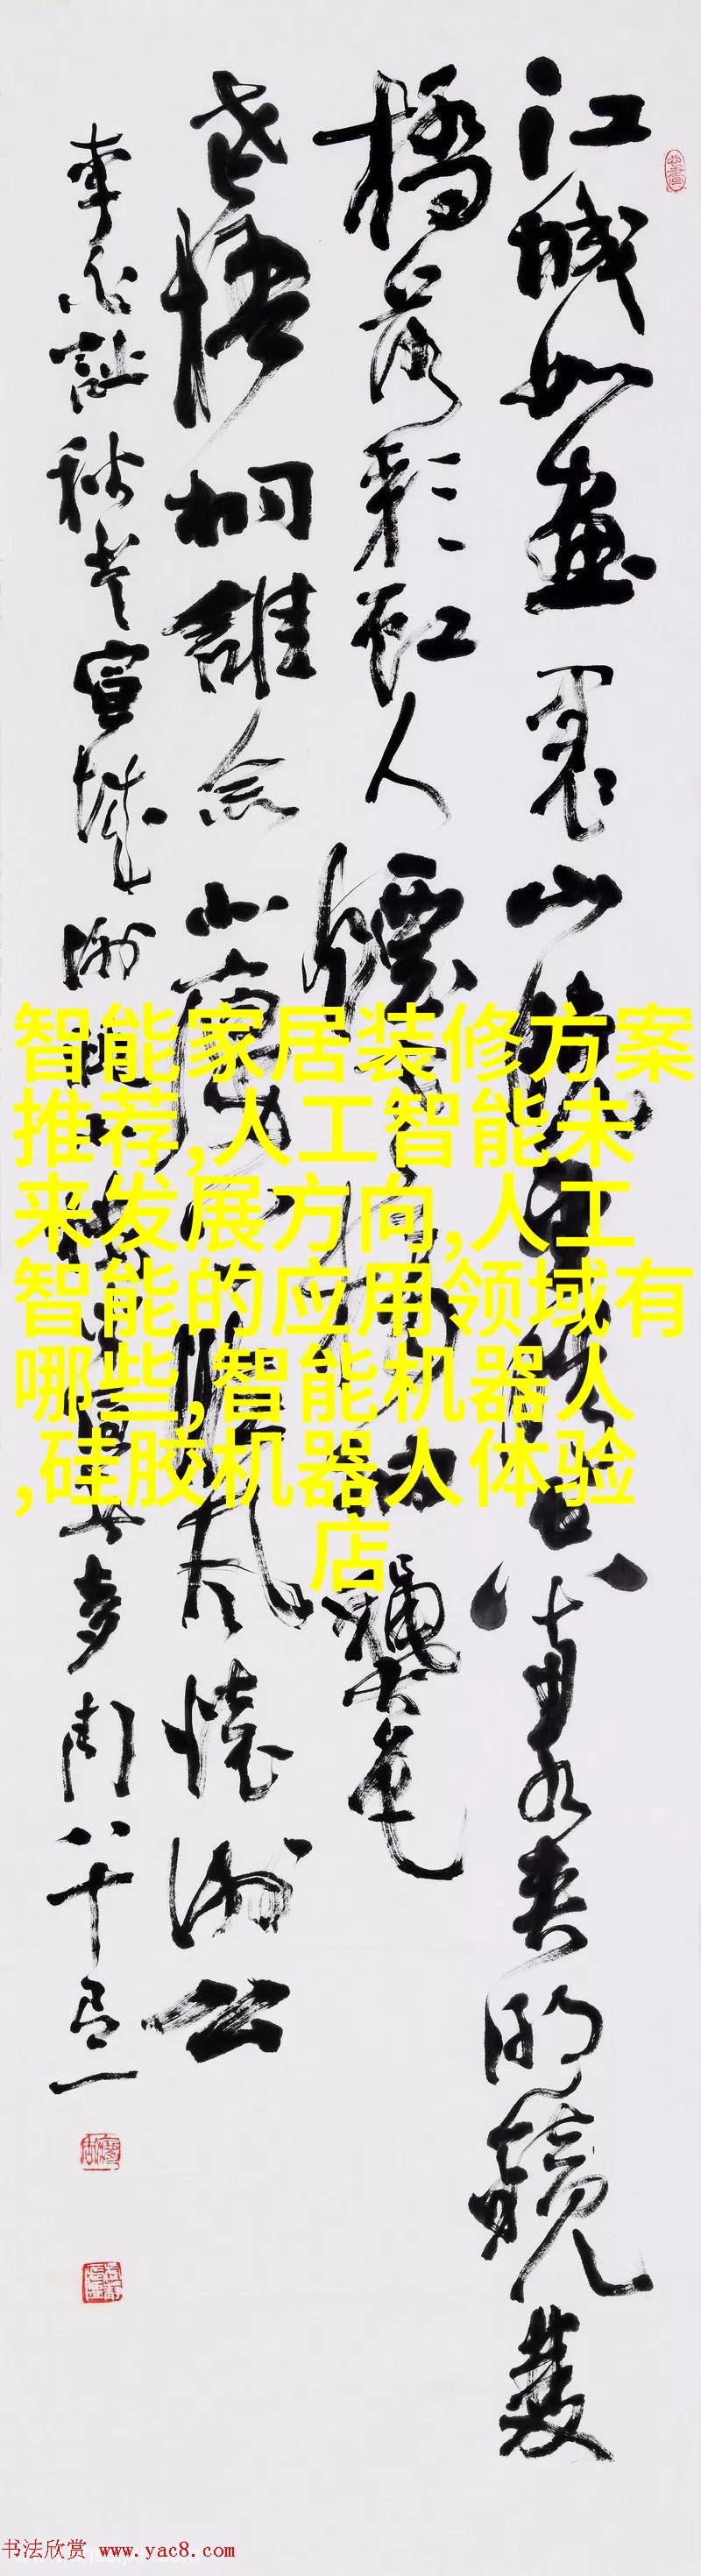 江城如画里山晓望晴空两水夹明镜双
桥落彩虹人烟寒橘柚秋色
老梧桐谁念北楼上临风怀谢公
李白诗秋登宣城谢眺北楼
八十
智能家居装修方案
推荐,人工智能未
来发展方向,人工
智能的应用领域有
哪些,智能机器人
,硅胶机器人体验
店
书法欣赏 www.yac8.com